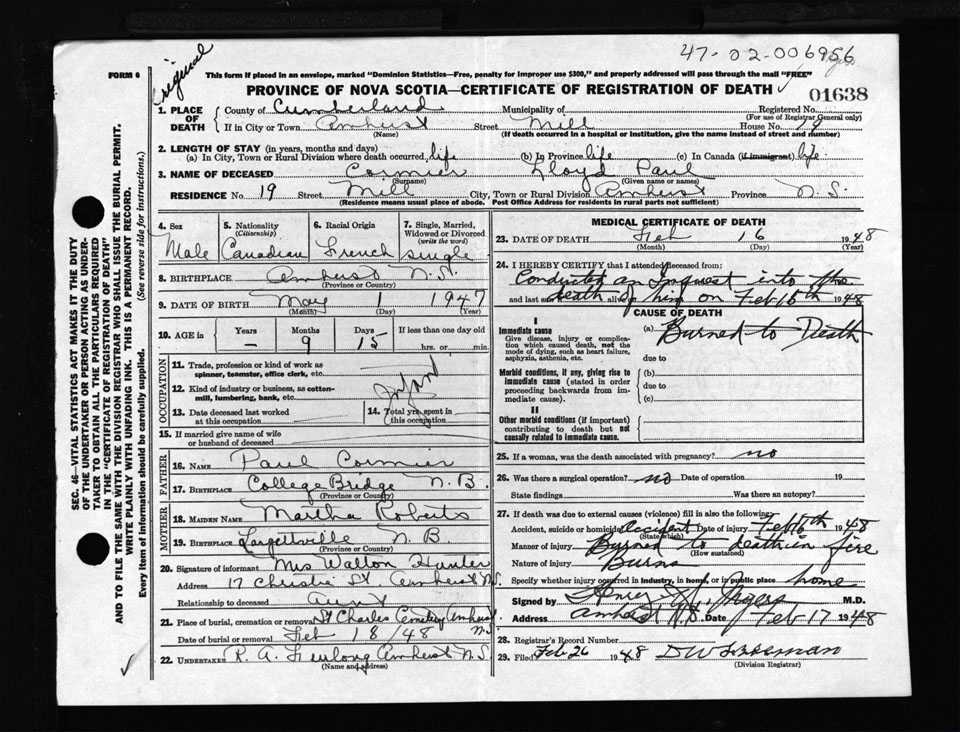 47-02-006956
Original
FORM 6
This form if placed in an envelope, marked "Dominion Statistics—Free, penalty for improper use $300," and properly addressed will pass through the mail "FREE"
PROVINCE OF NOVA SCOTIA—CERTIFICATE OF REGISTRATION OF DEATH
01638
1. PLACE OF DEATH
County of Cumberland Municipality of Registered No.
(For use of Registrar General only)
If in City or Town Amherst Street Mill House No. 19
(Name) (If death occurred in a hospital or institution, give the name instead of street and number)
2. LENGTH OF STAY (in years, months and days)
(a) In City, Town or Rural Division where death occurred, life (b) In Province life (c) In Canada (if immigrant) life
3. NAME OF DECEASED Cormier Lloyd Paul
(Surname) (Given name or names)
RESIDENCE No. 19 Street Mill City, Town or Rural Division Amherst Province N.S.
(Residence means usual place of abode. Post Office Address for residents in rural parts not sufficient)
4. Sex
Male
5. Nationality (Citizenship)
Canadian
6. Racial Origin
French
7. Single, Married, Widowed or Divorced (write the word)
Single
8. BIRTHPLACE Amherst N.S.
(Province or Country)
9. DATE OF BIRTH May 1 1947
(Month) (Day) (Year)
10. AGE in Years Months Days If less than one day old
— 9 15 hrs. or min.
OCCUPATION
11. Trade, profession or kind of work as spinner, teamster, office clerk, etc.
12. Kind of industry or business, as cotton-mill, lumbering, bank, etc.
Infant
13. Date deceased last worked at this occupation
14. Total yrs. spent in this occupation
15. If married give name of wife or husband of deceased
FATHER
16. NAME Paul Cormier
17. BIRTHPLACE College Bridge N.B.
(Province or Country)
MOTHER
18. MAIDEN NAME Martha Roberts
19. BIRTHPLACE N.B.
(Province or Country)
20. Signature of informant Mrs Walton Hunter
Address 17 Christie St. Amherst N.S.
Relationship to deceased Aunt
21. Place of burial, cremation or removal St Charles Cemetery Amherst N.S.
Date of burial or removal Feb 18/48
22. UNDERTAKER R. A. Furlong Amherst N.S.
(Name and address)
MEDICAL CERTIFICATE OF DEATH
23. DATE OF DEATH Feb 16 1948
(Month) (Day)
24. I HEREBY CERTIFY that I attended deceased from:
Conducted an Inquest into the
and last saw death alive of him on Feb 16th 1948
CAUSE OF DEATH
I
Immediate cause
Give disease, injury or complication which caused death, not the mode of dying, such as heart failure, asphyxia, asthenia, etc.
(a) Burned to Death
due to
Morbid conditions, if any, giving rise to immediate cause (stated in order proceeding backwards from immediate cause).
(b)
due to
(c)
II
Other morbid conditions (if important) contributing to death but not causally related to immediate cause.
25. If a woman, was the death associated with pregnancy? no
26. Was there a surgical operation? no Date of operation 19
State findings Was there an autopsy?
27. If death was due to external causes (violence) fill in also the following:
Accident, suicide or homicide? accident Date of injury Feb 16th 1948
(State which)
Manner of injury Burned to death in fire
(How sustained)
Nature of injury Burns
Specify whether injury occurred in industry, in home, or in public place home
Signed by Henry M.D.
Address Amherst N.S. Date Feb 17 1948
28. Registrar's Record Number
29. Filed Feb 26 1948
(Division Registrar)
SEC. 46—VITAL STATISTICS ACT MAKES IT THE DUTY
OF THE UNDERTAKER OR PERSON ACTING AS UNDER-
TAKER TO OBTAIN ALL THE PARTICULARS REQUIRED
IN THE "CERTIFICATE OF REGISTRATION OF DEATH"
AND TO FILE THE SAME WITH THE DIVISION REGISTRAR WHO SHALL ISSUE THE BURIAL PERMIT.
WRITE PLAINLY WITH UNFADING INK. THIS IS A PERMANENT RECORD.
Every item of information should be carefully supplied. (See reverse side for instructions.)